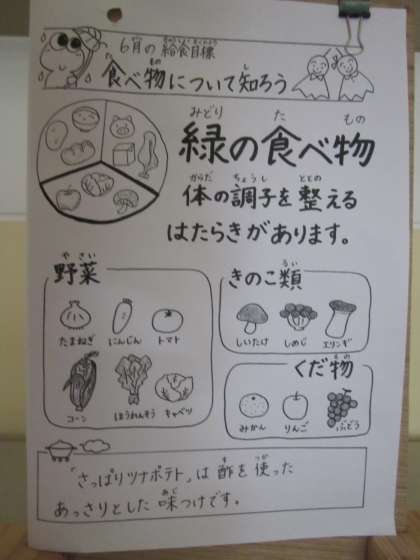 6月の給食目標
食べ物について知ろう
緑の食べ物
体の調子を整える
はたらきがあります。
野菜
たまねぎ にんじん トマト
コーン ほうれんそう キャベツ
きのこ類
しいたけ しめじ エリンギ
くだ物
みかん りんご ぶどう
「さっぱりツナポテト」は酢を使った
あっさりとした味つけです。